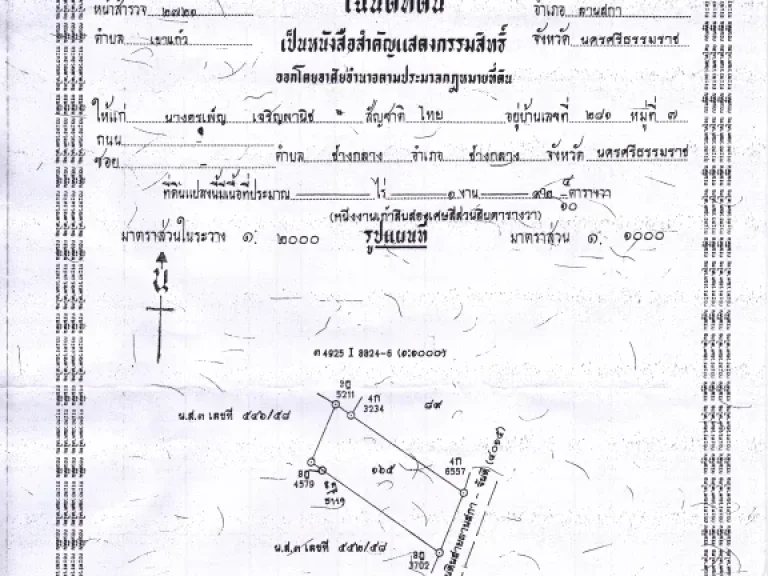 หน้าสำรวจ ๒๗๒๑ โฉนดที่ดิน อำเภอ ลานสกา
ตำบล เขาแก้ว เป็นหนังสือสำคัญแสดงกรรมสิทธิ์ จังหวัด นครศรีธรรมราช
ออกโดยอาศัยอำนาจตามประมวลกฎหมายที่ดิน
ให้แก่ นางอรเพ็ญ เจริญพานิช สัญชาติ ไทย อยู่บ้านเลขที่ ๒๘๑ หมู่ที่ ๗
ถนน -
ซอย - ตำบล ช้างกลาง อำเภอ ช้างกลาง จังหวัด นครศรีธรรมราช
ที่ดินแปลงนี้มีเนื้อที่ประมาณ ไร่ ๑ งาน ๙๒ ๔/๑๐ ตารางวา
(หนึ่งงานเก้าสิบสองเศษสี่ส่วนสิบตารางวา)
มาตราส่วนในระวาง ๑: ๒๐๐๐ รูปแผนที่ มาตราส่วน ๑: ๑๐๐๐
น
4925 I 8824-6 (๑:๑๐๐๐)
5211
4ก
3234
๘๙
น.ส.๓ เลขที่ ๕๔๖/๕๘
๑๖๕
4ก
6557
4579
น.ส.๓ เลขที่ ๕๕๒/๕๘
3702
สายลานสกา - จันดี (๔๐๑๕)